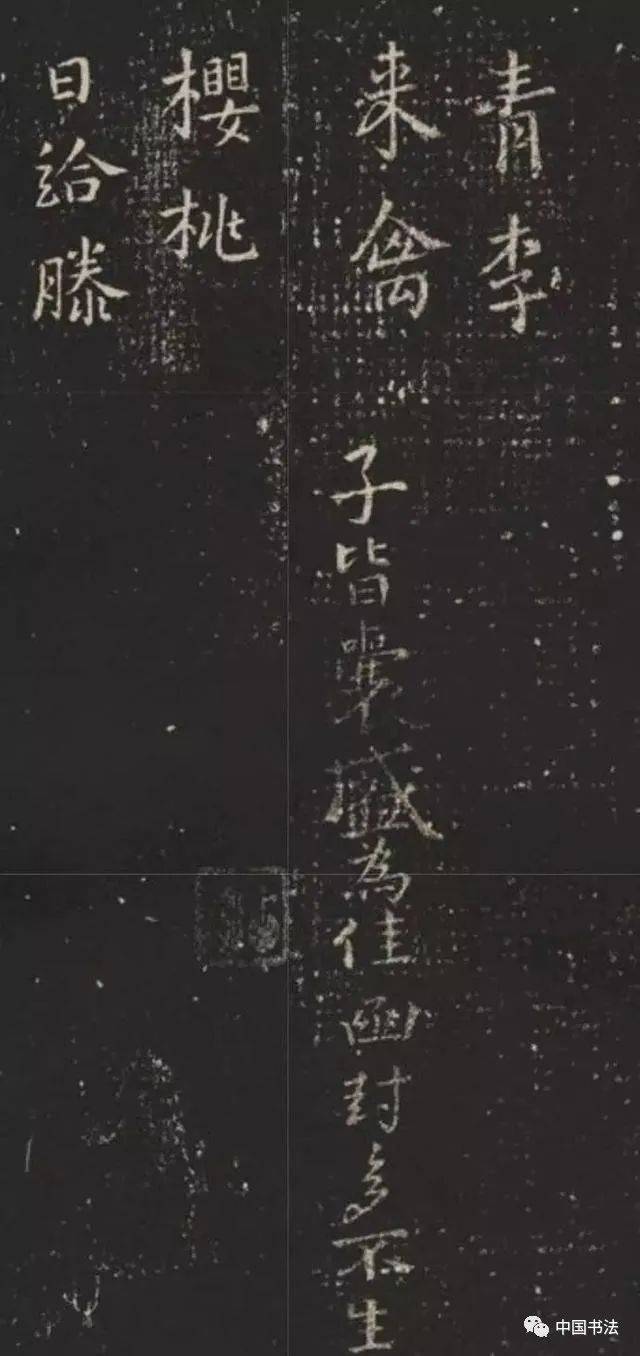 青李
来禽
櫻桃
日給滕
子皆囊盛為佳函封多不生
中国书法